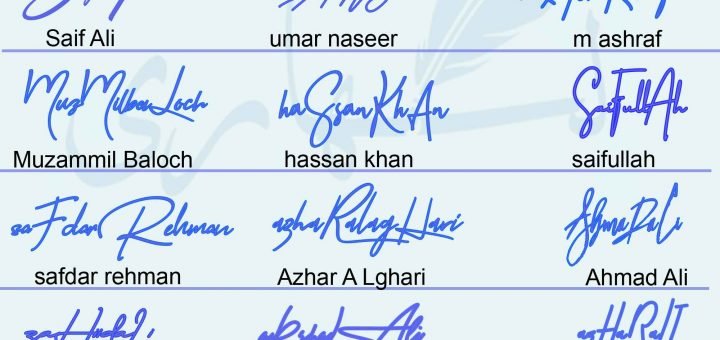 Saif Ali umar naseer m ashraf
MuzMilbaLoch haSsanKhAn SaiFullAh
Muzammil Baloch hassan khan saifullah
saFdarRehman azhaRalagHari AhmaDaLi
safdar rehman Azhar A Lghari Ahmad Ali